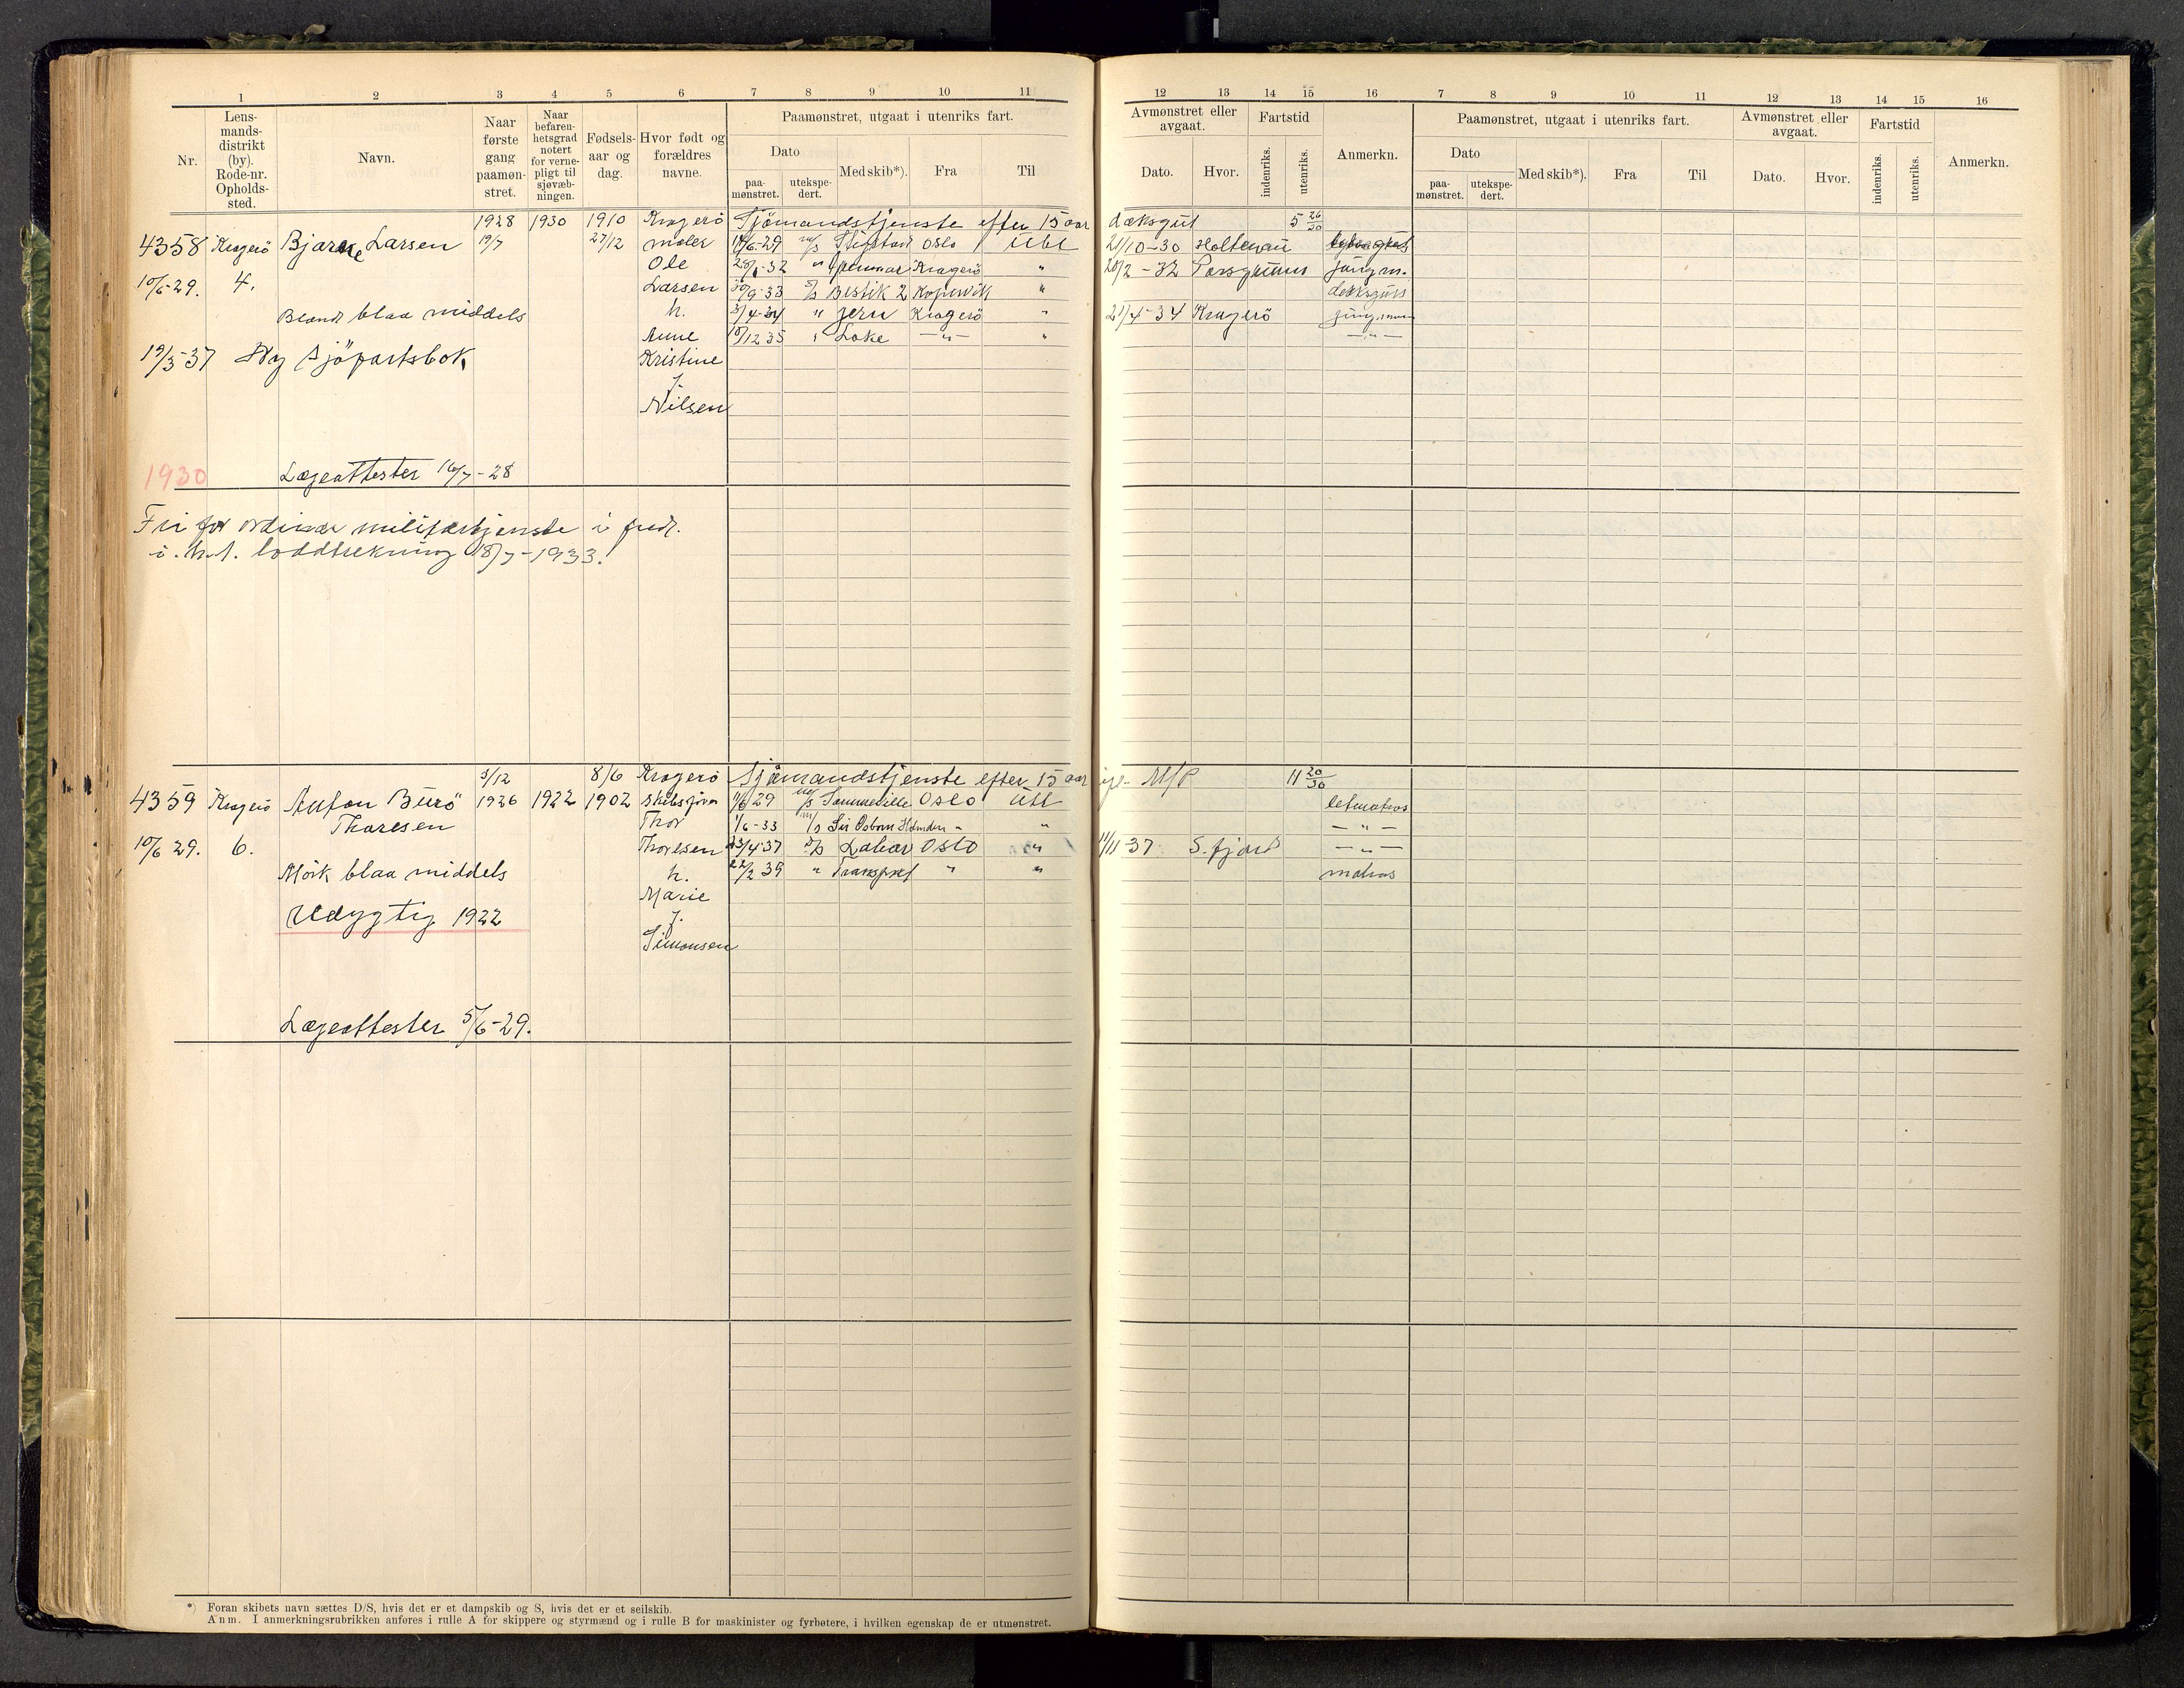 1 2 3 4 5 6 7 8 9 10 11
Nr.
Lens-
mands-
distrikt
(by).
Rode-nr.
Opholds-
sted.
Navn.
Naar
første
gang
paamøn-
stret.
Naar
befaren-
hetsgrad
notert
for verne-
pligt til
sjøvæb-
ningen.
Fødsels-
aar og
dag.
Hvor født og
forældres
navne.
Paamønstret, utgaat i utenriks fart.
Dato
paa-
mønstret.
utekspe-
dert.
Med skib*).
Fra
Til
12 13 14 15 16 7 8 9 10 11 12 13 14 15 16
Avmønstret eller
avgaat.
Dato.
Hvor.
Fartstid
indenriks.
utenriks.
Anmerkn.
Paamønstret, utgaat i utenriks fart.
Dato
paa-
mønstret.
utekspe-
dert.
Med skib*).
Fra
Til
Avmønstret eller
avgaat.
Dato.
Hvor.
Fartstid
indenriks.
utenriks.
Anmerkn.
1928 1930 1910 Kragerö Sjömandstjenste efter 15 aar dæksgut 5 26/30
4358 Kragerö Bjarne Larsen 19/7 27/12 maler 14/6-29 m/s Oslo Utl 21/10-30 Holtenau
Ole 28/1-32 " Kragerö " 20/2-32 Porsgrunn jungm.
10/6-29. 4. Larsen 30/9-33 Bestik 2 Kopervik " dekksgutt
Blond blaa middels h. 3/4-34 " Jern Kragerö " 21/4-34 Kragerö jungmann
Anne 10/12 35 " Loke —"— " —"—
19/3-37 Ny sjöfartsbok Kristine
f.
Nilsen
1930 Lægeattester 16/7-28
Fri for ordinær militærtjenste i fred.
i.h.t. loddtrekning 18/7-1933.
3/12 8/6 Kragerö Sjömandstjenste efter 15 aar
11 20/30
4359 Kragerö Anton Burö 1926 1922 1902 11/6 29 m/s Oslo Utl letmatros
Thoresen Thor 1/6-33 m/s Sir Osborn Holmden " " —"—
10/6 29. 6. Thoresen 23/4-37 Oslo " 11/11 37 S.fjord —"—
Mörk blaa middels h. 22/2 39 " " " matros
Marie
Udygtig 1922 f.
Simonsen
Lægeattester 5/6-29.
*) Foran skibets navn sættes D/S, hvis det er et dampskib og S, hvis det er et seilskib.
Anm. I anmerkningsrubrikken anføres i rulle A for skippere og styrmænd og i rulle B for maskinister og fyrbøtere, i hvilken egenskap de er utmønstret.